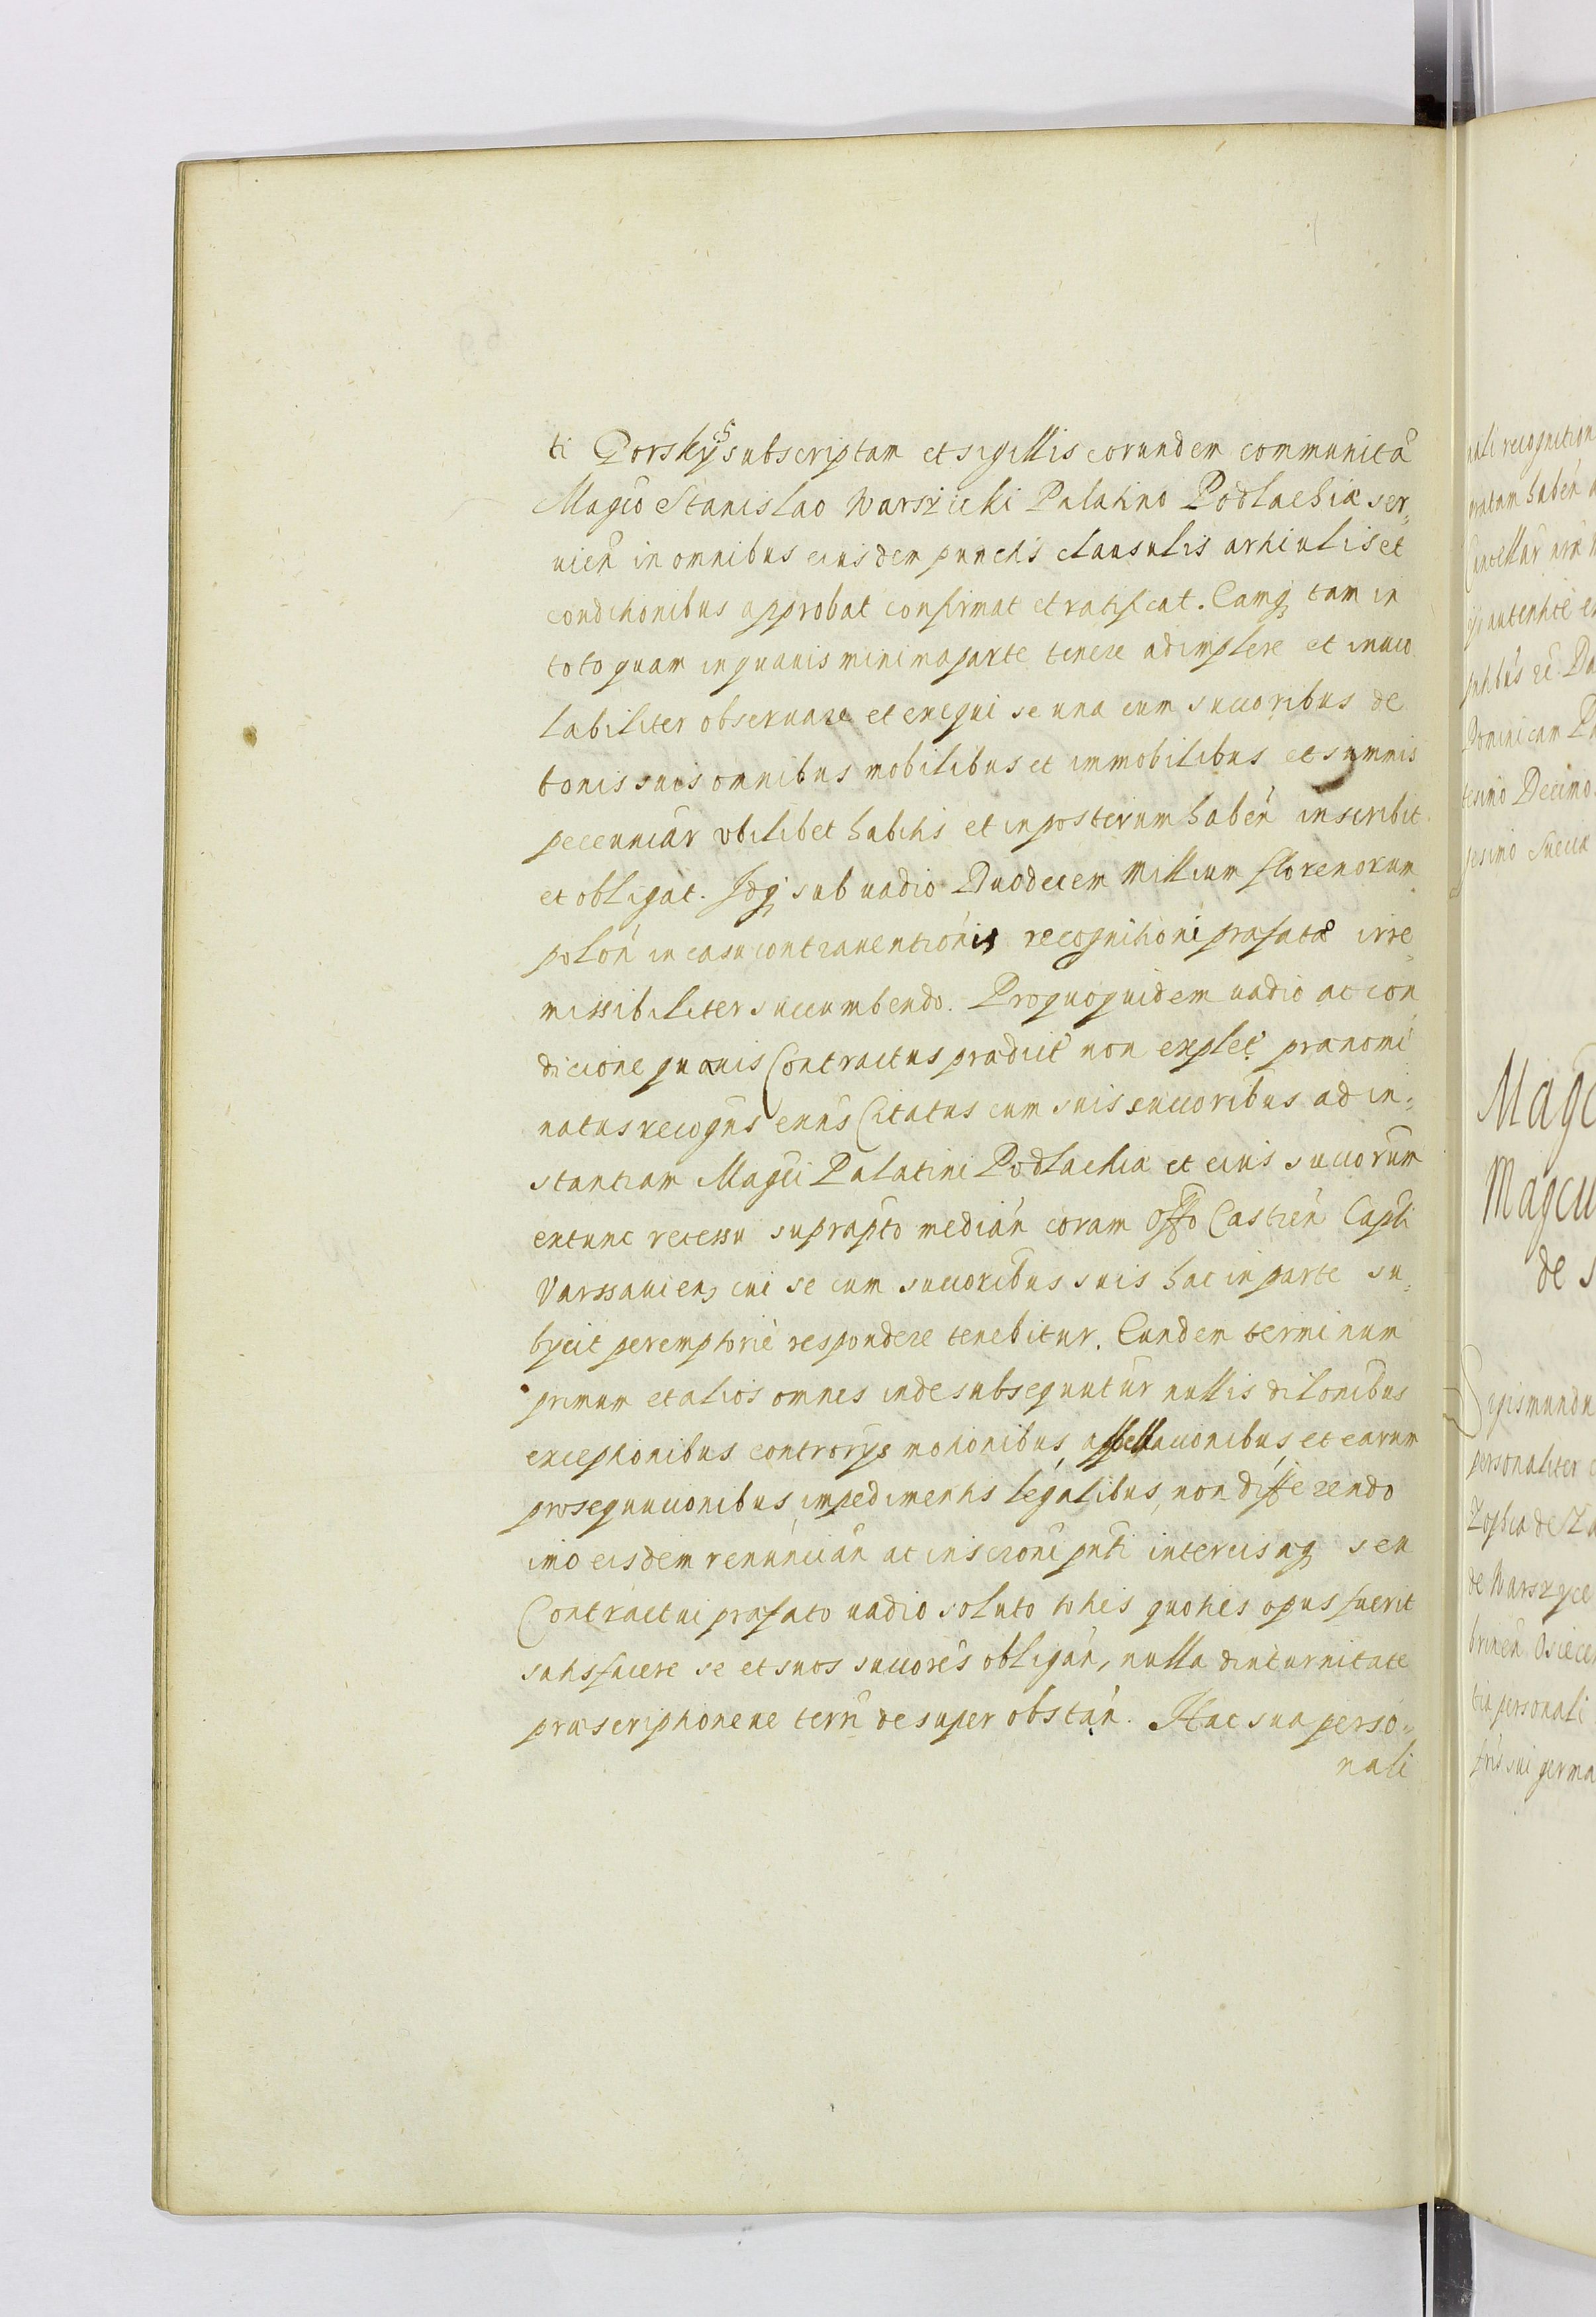 ti Gorskÿs subscriptam et sigillis eorundem communitã
Magco Stanislao Warszicki Palatino Podlachiæ ser„
uien̄ in omnibus eiusdem punctis clausulis articulis et
conditionibus approbat confirmat et ratificat. Eamq₃ tam in
toto quam in quauis minima parte tenere adimplere et inuio
labiliter obseruare et exequi se una cum succoribus de
bonis suis omnibus mobilibus et immobilibus et summis
pecuniar vbilibet habitis et in posterum habeń inscribit
et obligat. Idq₃ sub uadio Duodecem Millium florenorum
polon̄ in casu contrauentionis recognitioni præfatæ irre„
missibiliter succumbendo. Pro quo quidem uadio ac con
dicione quauis Contractus prædict̃ non explet̃ prænomi
natus recogn̄s eius Citatus cum suis succoribus ad in„
stantiam Magci Palatini Podlachiæ et eius succorum
extunc recessu suprapto medián coram Offo Castren̄ Capli
Varssauien₃ cui se cum succoribus suis hac in parte su„
bycit peremptorie respondere tenebitur. Eundem terminum
primum et alios omnes inde subsequutur nullis dilonibus
exceptionibus controrys motionibus, appellacionibus, et earum
prosequucionibus impedimentis legalibus, non differendo
imo eisdem renunciań ac inscroni pnti intercisaq₃ seu
Contractui præfato uadio soluto toties quoties opus fuerit
satisfacere se et suos succores obligań, nulla diuturnitate
præscriptioneue terrī desuper obstań. Hac sua perso„
nali
nali recognition
Cancellar
Dominicam
tesimo Decimo
gesimo
Magc
Magcu
de s
Sigismundu
personaliter
Zophia de Za
de Warszyce
tia personali
fris sui germa